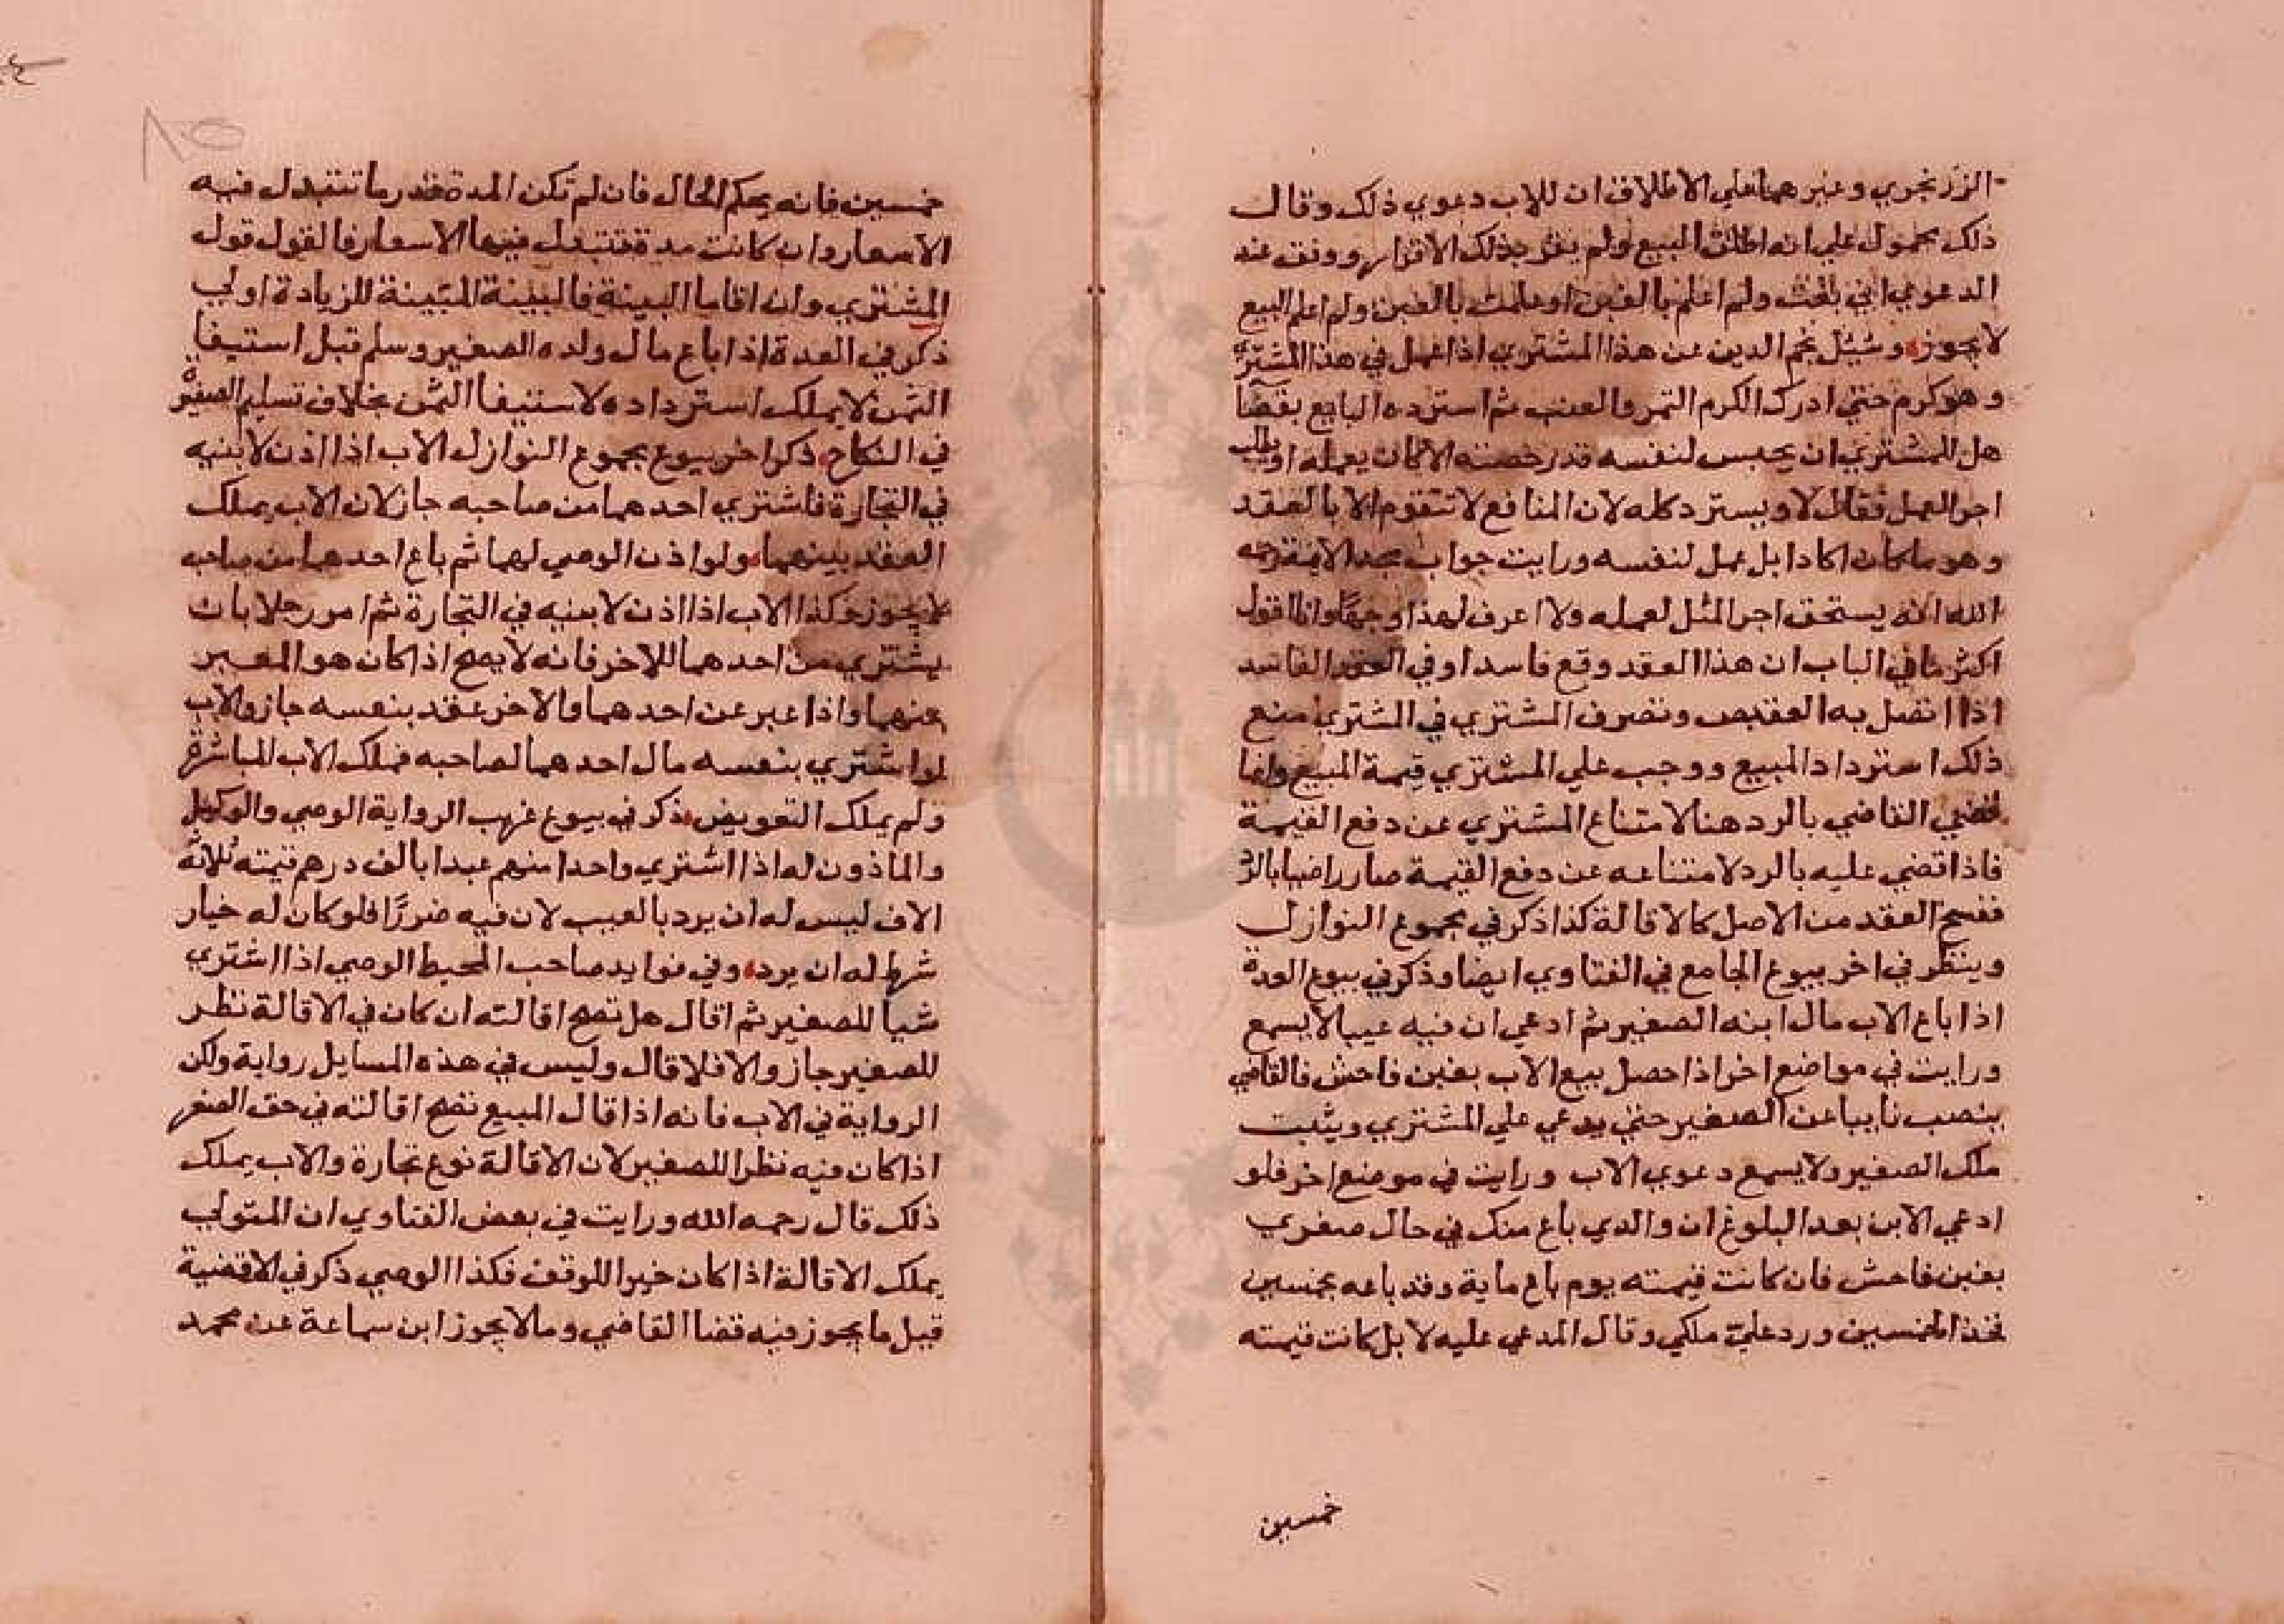 الزرنجري وغيرهما علي الاطلاق ان للاب دعوي ذلك وقال
ذلك محمول علي انه اطلق البيع ولم يقر بذلك الاقرار ووقف عند
الدعوي اني بعت ولم اعلم بالغبن او علمت بالغبن ولم اعلم البيع
لا يجوز وسئل نجم الدين عن هذا المشتري اذا عمل في هذا المشتري
وهو كرم حتي ادرك الكرم الثمر والعنب ثم استرده البايع بقضا
هل للمشتري ان يحبس لنفسه قدر حصته الاكان يعمله او يطلب
اجر العمل فقال لا ويسترد كله لان المنافع لا تتقوم الا بالعقد
وهو ما كان اكادا بل عمل لنفسه ورايت جواب مجد الايمة رحمه
الله انه يستحق اجر المثل لعمله ولا اعرف لهذا وجها وانا اقول
اكثر ما في الباب ان هذا العقد وقع فاسدا وفي العقد الفاسد
اذا اتصل به القبض وتصرف المشتري في المشتري منع
ذلك استرداد المبيع ووجب علي المشتري قيمة المبيع وانما
قضي القاضي بالرد هنا لامتناع المشتري عن دفع القيمة
فاذا قضي عليه بالرد لامتناعه عن دفع القيمة صار راضيا بالرد
ففسخ العقد من الاصل كالاقالة كذا ذكر في مجموع النوازل
وينظر في اخر بيوع الجامع في الفتاوي ايضا وذكر في بيوع العدة
اذا باع الاب مال ابنه الصغير ثم ادعي ان فيه عيبا لا يسمع
ورايت في مواضع اخر اذا حصل بيع الاب بغبن فاحش فالقاضي
ينصب نايبا عن الصغير حتي يدعي علي المشتري ويثبت
ملك الصغير ولا يسمع دعوي الاب ورايت في موضع اخر فلو
ادعي الابن بعد البلوغ ان والدي باع منك في حال صغري
بغبن فاحش فان كانت قيمته يوم باع ماية وقد باعه بخمسين
فخذ الخمسين ورد علي ملكي وقال المدعي عليه لا بل كانت قيمته
خمسين
خمسين فانه يحكم الحال فان لم تكن المدة قدر ما تتبدل فيه
الاسعار وان كانت مدة تتبدل فيها الاسعار فالقول قول
المشتري وان اقاما البينة فالبينة المثبتة للزيادة اولي
ذكر في العدة اذا باع مال ولده الصغير وسلم قبل استيفا
الثمن لا يملك استرداده لاستيفا الثمن بخلاف تسليم الصغيرة
في النكاح ذكر اخر بيوع مجموع النوازل الاب اذا اذن لابنيه
في التجارة فاشتري احدهما من صاحبه جاز لان الاب يملك
العقد بينهما ولو اذن الوصي لهما ثم باع احدهما من صاحبه
لا يجوز وكذا الاب اذا اذن لابنيه في التجارة ثم امر رجلا بان
يشتري من احدهما للاخر فانه لا يصح اذا كان هو المعبر
عنهما واذا عبر عن احدهما والاخر عقد بنفسه جاز والاب
لو اشتري بنفسه مال احدهما لصاحبه فملك الاب المباشرة
ولم يملك التفويض ذكر في بيوع غريب الرواية الوصي والوكيل
والماذون له اذا اشتري واحدا منهم عبدا بالف درهم قيمته ثلاثة
الاف ليس له ان يرد بالعيب لان فيه ضررا فلو كان له خيار
شرط له ان يرد وفي فوايد صاحب المحيط الوصي اذا اشتري
شيا للصغير ثم اقال هل تصح اقالته ان كان في الاقالة نظر
للصغير جاز والا فلا قال وليس في هذه المسايل رواية ولكن
الرواية في الاب فانه اذا قال المبيع تصح اقالته في حق الصغير
اذا كان فيه نظرا للصغير لان الاقالة نوع تجارة والاب يملك
ذلك قال رحمه الله ورايت في بعض الفتاوي ان المتولي
يملك الاقالة اذا كان خيرا للوقف فكذا الوصي ذكر في الاقضية
قبل ما يجوز فيه قضا القاضي وما لا يجوز ابن سماعة عن محمد